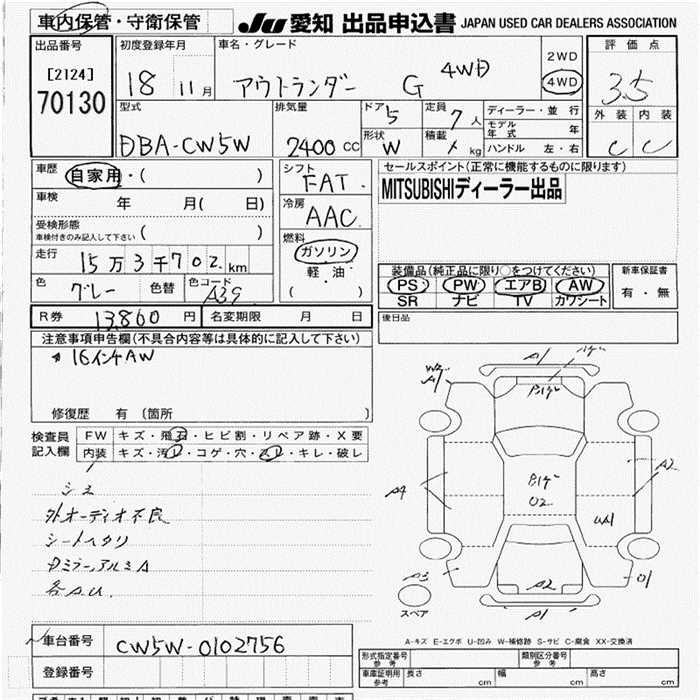 車内保管・守衛保管
JU 愛知 出品申込書 JAPAN USED CAR DEALERS ASSOCIATION
出品番号
[2124]
70130
初度登録年月
18 11月
車名・グレード
アウトランダー G 4WD
2WD
4WD
評価点
3.5
外装 内装
C C
型式
DBA-CW5W
排気量
2400 CC
ドア
5
形状
W
定員
7人
積載
kg
ディーラー・並行
モデル年式 年
ハンドル 左・右
車歴
自家用・( )
車検 年 月( 日)
受検形態
車検付きのみ記入して下さい ( )
走行
15万3千702km
色
グレー
色替
色コード
A39
シフト
FAT
冷房
AAC
燃料
ガソリン
軽油・
( )
セールスポイント(正常に機能するものに限ります)
MITSUBISHIディーラー出品
装備品(純正品に限り○をつけてください)
PS PW エアB AW
SR ナビ TV カワシート
新車保証書
有・無
R券 13,860円 名変期限 月 日
後日品
注意事項申告欄(不具合内容等は具体的に記入して下さい)
16インチAW
修復歴 有 (箇所 )
検査員記入欄
FW キズ・飛石・ヒビ割・リペア跡・X要
内装 キズ・汚レ・コゲ・穴・スレ・キレ・破レ
シミ
外オーディオ不良
シートヘタリ
Dミラー、アルミA
各A.U.
A1
W2
A1
A4
A3
A2
A2
A1
U2
O1
スペア
A-キズ E-エクボ U-凹み W-補修跡 S-サビ C-腐食 XX-交換済
車台番号 CW5W-0102756
登録番号
形式指定番号 参考
類別区分番号 参考
車庫証明用 参考 長さ cm 幅 cm 高さ cm